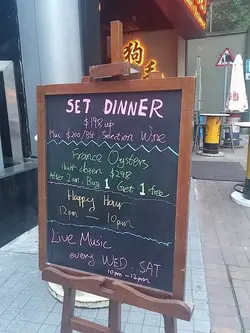 狗
SET DINNER
$198 up
Plus $200/Btl Selection Wine
France Oysters
Half dozen $298
After 7pm, Buy 1 Get 1 free
Happy Hour
12pm — 10pm
Live Music
every WED. SAT
10pm - 12pm